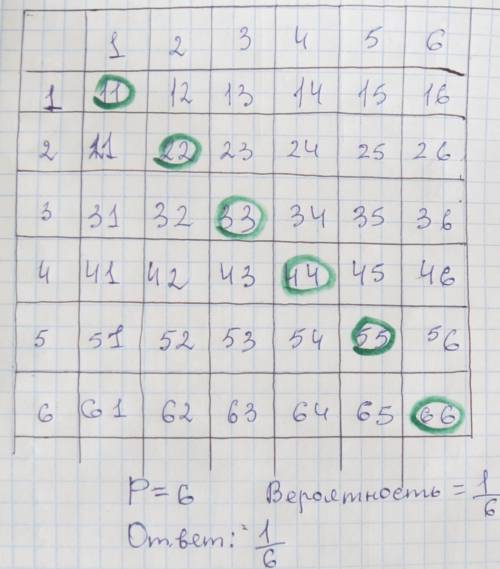 1 2 3 4 5 6
1 11 12 13 14 15 16
2 21 22 23 24 25 26
3 31 32 33 34 35 36
4 41 42 43 44 45 46
5 51 52 53 54 55 56
6 61 62 63 64 65 66
P = 6 Вероятность = 1/6
Ответ: 1/6